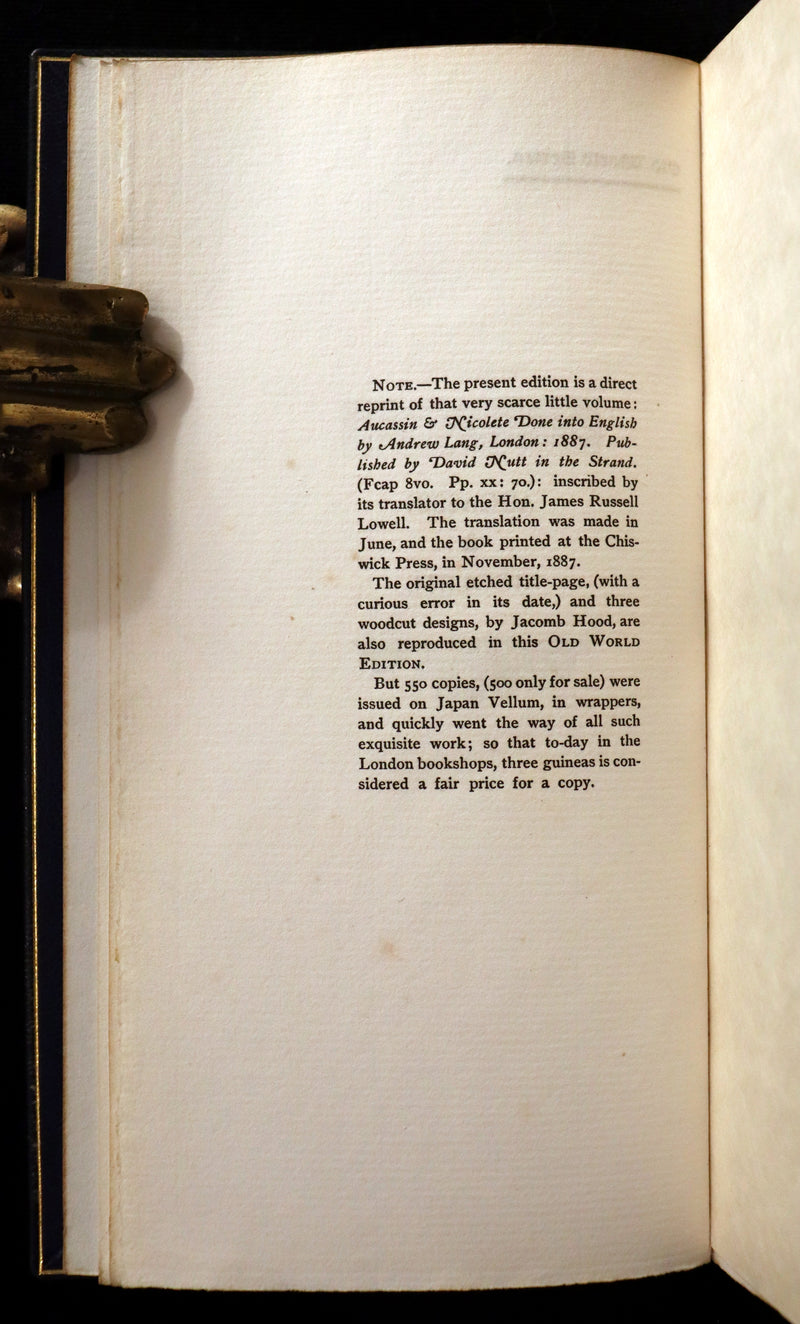 NOTE.—The present edition is a direct
reprint of that very scarce little volume:
Aucassin & Nicolete Done into English
by Andrew Lang, London: 1887. Pub-
lished by David Nutt in the Strand.
(Fcap 8vo. Pp. xx: 70.): inscribed by
its translator to the Hon. James Russell
Lowell. The translation was made in
June, and the book printed at the Chis-
wick Press, in November, 1887.
The original etched title-page, (with a
curious error in its date,) and three
woodcut designs, by Jacomb Hood, are
also reproduced in this OLD WORLD
EDITION.
But 550 copies, (500 only for sale) were
issued on Japan Vellum, in wrappers,
and quickly went the way of all such
exquisite work; so that to-day in the
London bookshops, three guineas is con-
sidered a fair price for a copy.